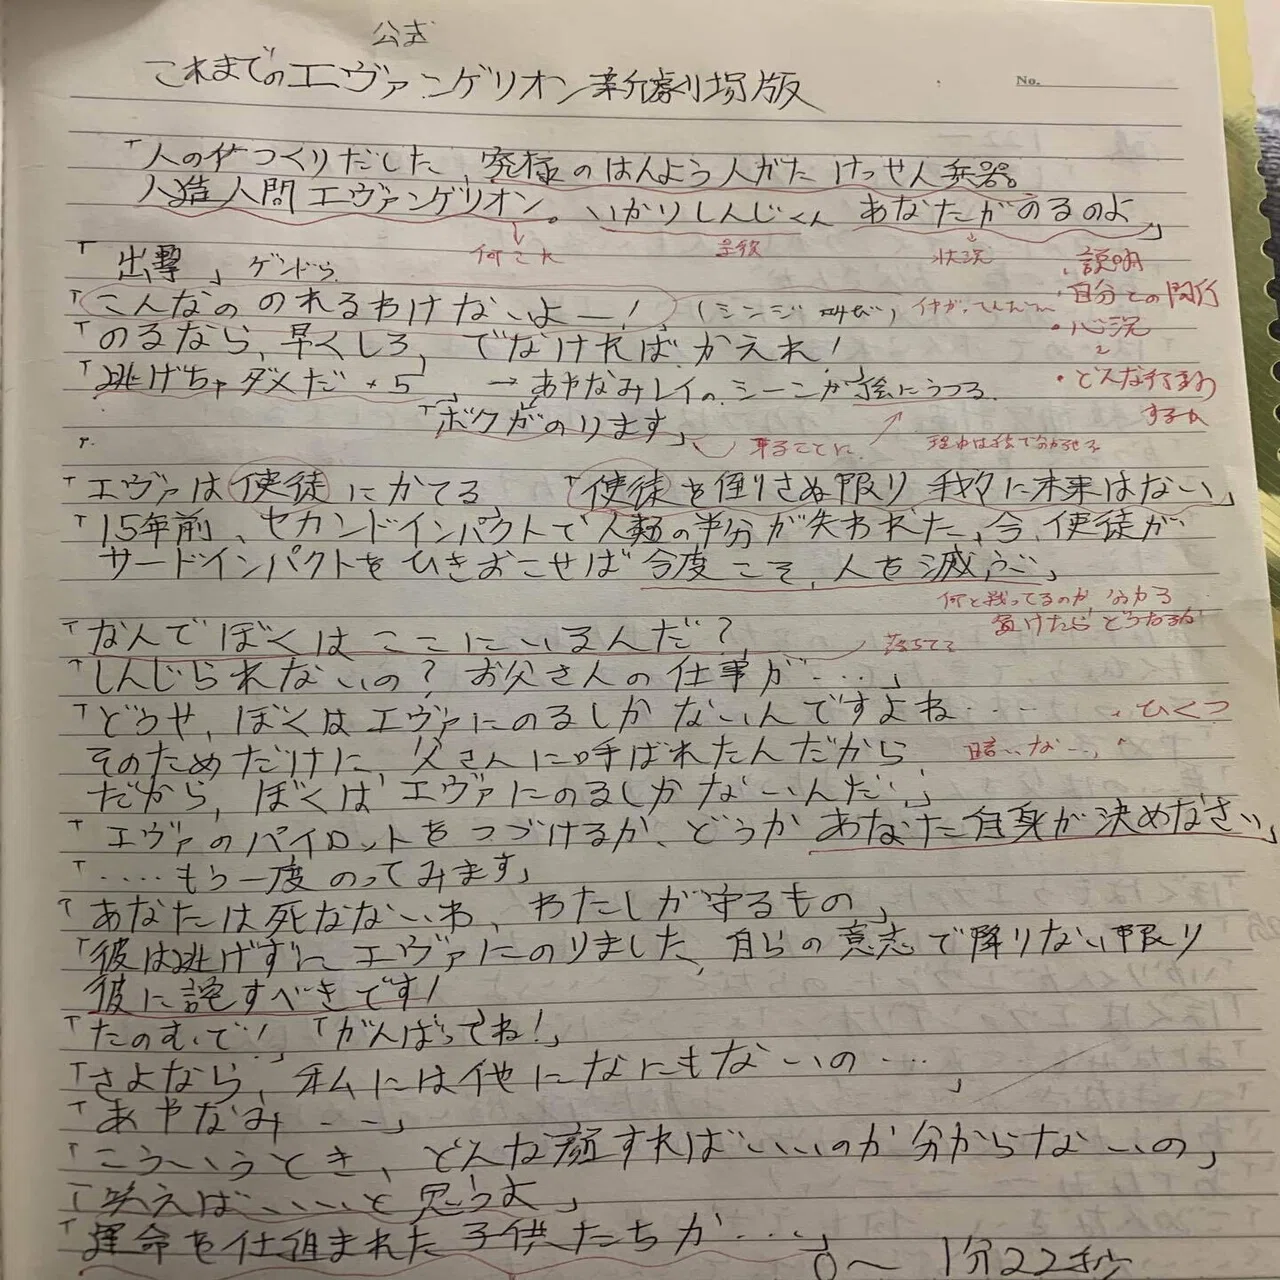 公式
これまでのエヴァンゲリオン新劇場版
No.
「人の作つくりだした、究極のはんよう人がたけっせん兵器。
人造人間エヴァンゲリオン。いかりしんじくんあなたがのるのよ」
何これ 呼称 状況 ・説明
「出撃」ゲンドウ
・自分との関係
「こんなの のれるわけないよー!」(シンジ叫び)
・心況
「のるなら、早くしろ、でなければかえれ!
「逃げちゃダメだ×5」→あやなみレイの、シーンが絵にうつる
・どんな行動
するか
「ボクがのります」
乗ることに 理由は絵で分かる
「エヴァは使徒にかてる 「使徒を倒さぬ限り我々に未来はない」
「15年前、セカンドインパクトで人類の半分が失われた、今、使徒が
サードインパクトをひきおこせば今度こそ、人を滅ぶ」
何と戦ってるのか分かる
負けたらどうなるか
「なんでぼくはここにいるんだ?
落ちてる
「しんじられないの?お父さんの仕事が‥‥」
「どうせ、ぼくはエヴァにのるしかないんですよね‥‥
・ひくつ
そのためだけに、父さんに呼ばれたんだから
暗いな…
だから、ぼくはエヴァにのるしかないんだ」
「エヴァのパイロットをつづけるか、どうかあなた自身が決めなさい」
「‥‥もう一度のってみます」
「あなたは死なないわ、わたしが守るもの」
「彼は逃げずにエヴァにのりました、自らの意志で降りない限り
彼に託すべきです!
「たのむで!」「がんばってね!」
「さよなら、私には他になにもないの‥‥」
「あやなみ‥‥」
「こういうとき、どんな顔すればいいのか分からないの」
「笑えばいいと思うよ」
「運命を仕組まれた子供たちか‥‥」
0〜1分22秒